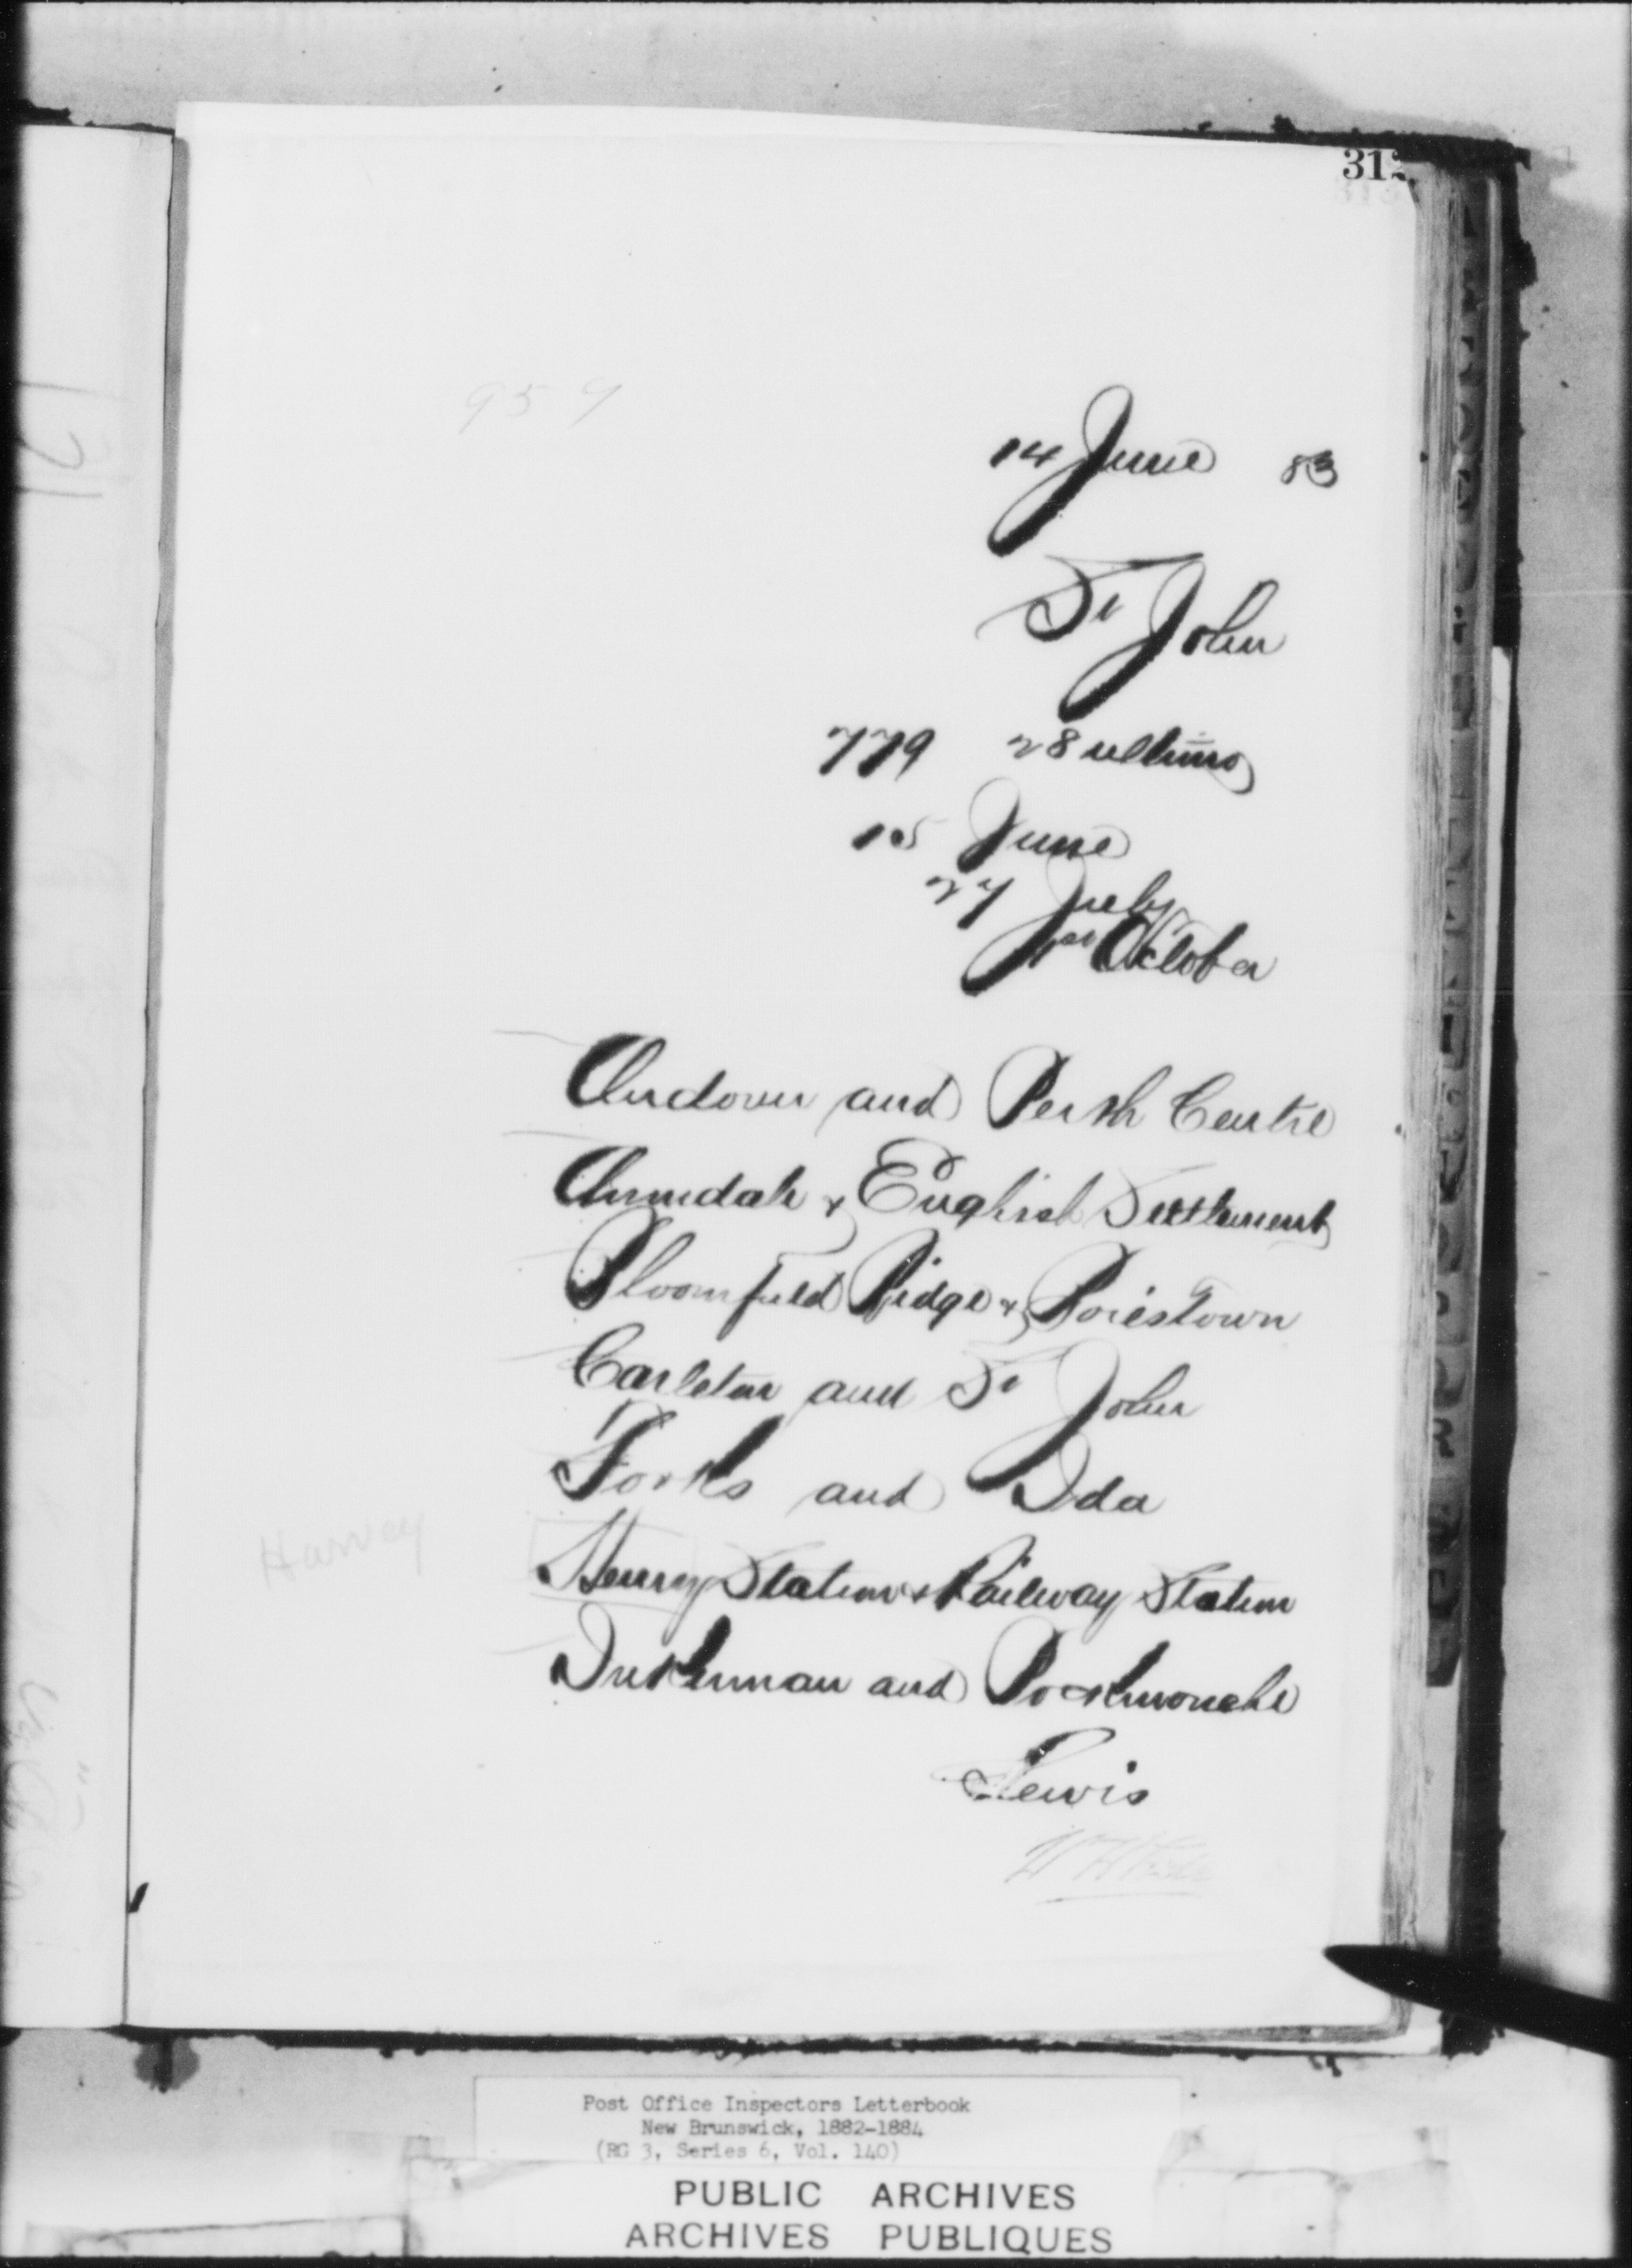 312
959
14 June 83
St John
779 28 ultimo
15 June
27 July
1st October
Andover and Perth Centre
Annidale & English Settlement
Bloomfield Ridge & Boiestown
Carleton and St John
Forks and Ida
Harvey
Henry Station & Railway Station
Inkerman and Pockmouche
Lewis
Post Office Inspectors Letterbook
New Brunswick, 1882-1884
(RG 3, Series 6, Vol. 140)
PUBLIC ARCHIVES
ARCHIVES PUBLIQUES